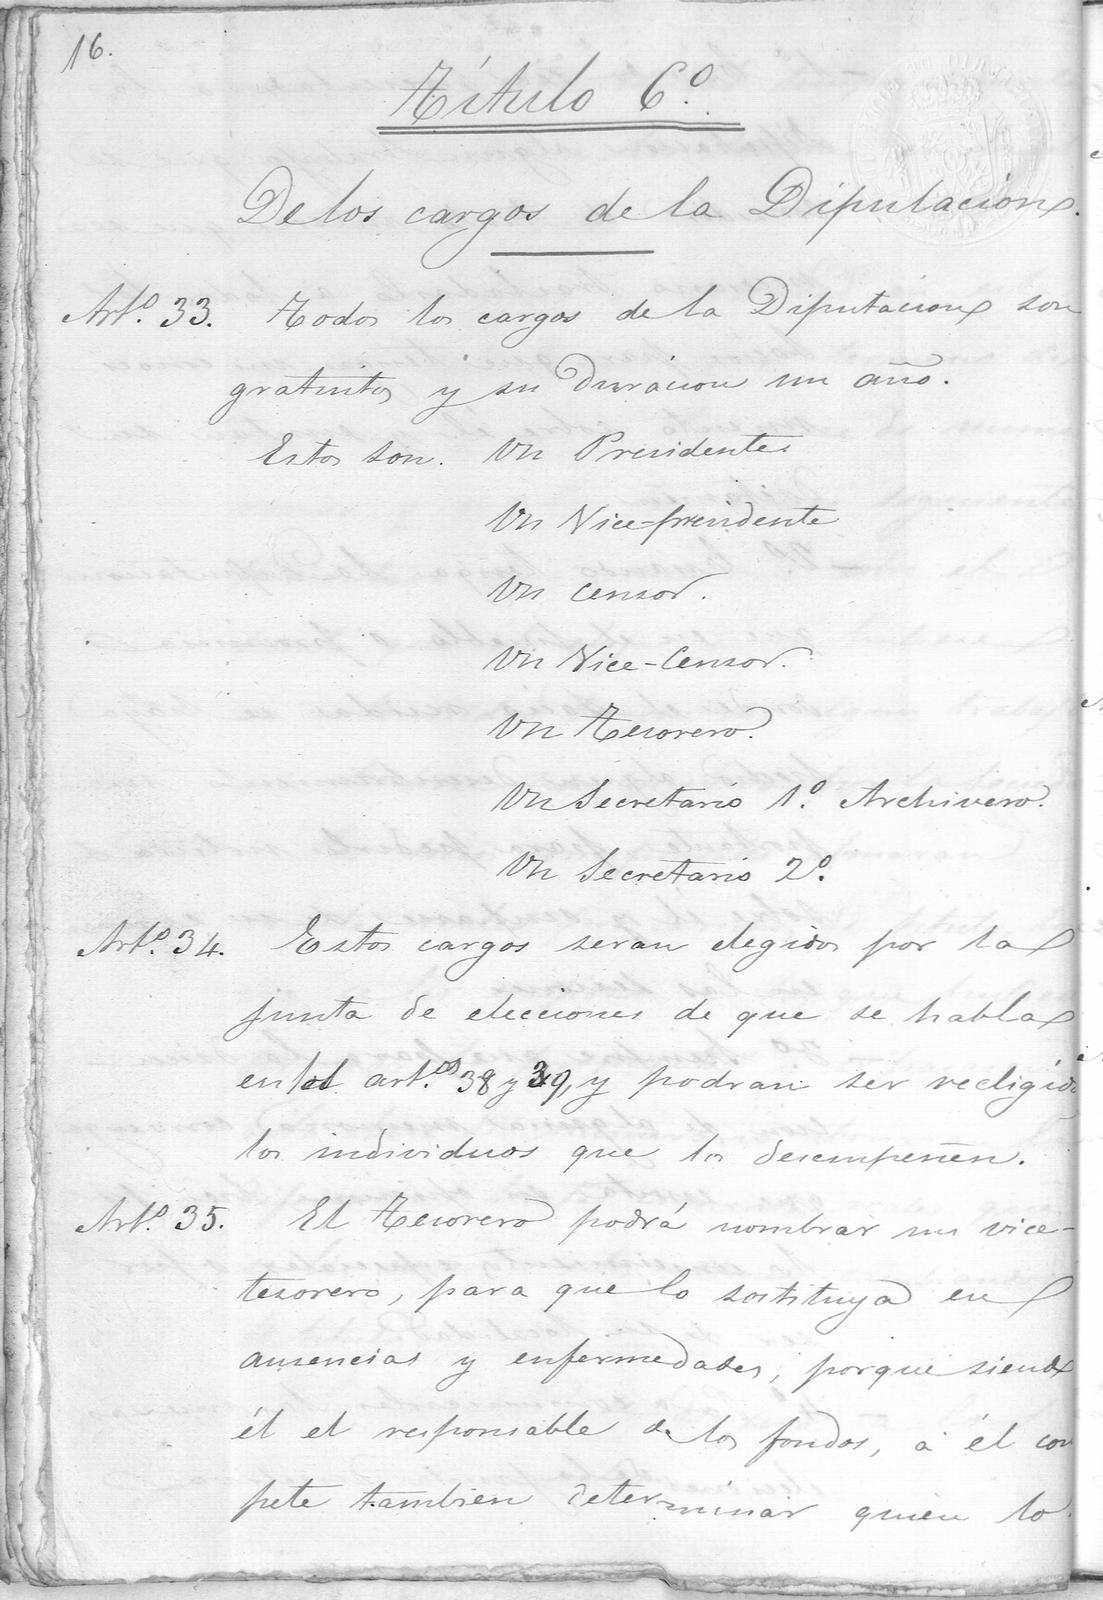 16.
Título 6º
De los cargos de la Diputacion.
Artº. 33. Todos los cargos de la Diputacion son
gratuitos y su duracion un año.
Estos son. Un Presidente
Un Vice-presidente
Un Censor.
Un Vice-Censor.
Un Tesorero.
Un Secretario 1º. Archivero.
Un Secretario 2º.
Artº. 34. Estos cargos seran elegidos por la
junta de elecciones de que se habla
en el art.os 38 y 39, y podran ser reeligido
los individuos que los desempeñen.
Artº. 35. El Tesorero podrá nombrar un vice-
tesorero, para que lo sostituya en
ausencias y enfermedades, porque siendo
él el responsable de los fondos, á él com
pete tambien determinar quien lo